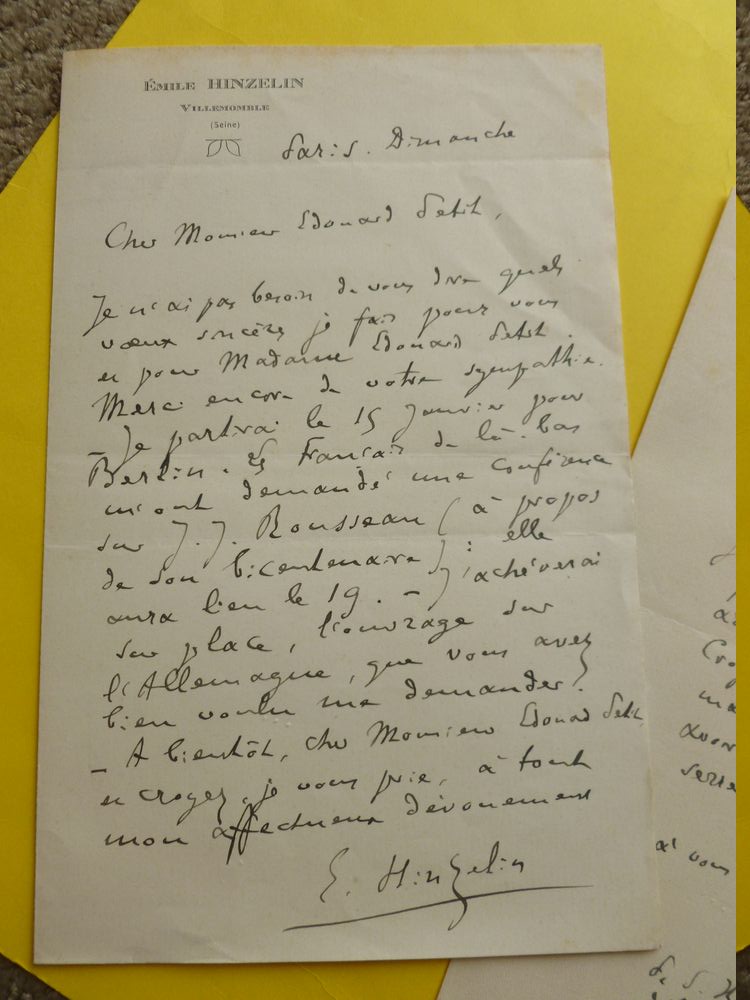 ÉMILE HINZELIN
VILLEMOMBLE
(Seine)
Paris. Dimanche
Cher Monsieur Edouard Petit,
Je n'ai pas besoin de vous dire quels
vœux sincères je fais pour vous
et pour Madame Edouard Petit.
Merci encore de votre sympathie.
– Je partirai le 15 Janvier pour
Berlin. Les Français de là-bas
m'ont demandé une conférence
sur J. J. Rousseau (à propos
de son bicentenaire) : elle
aura lieu le 19. – J'achèverai
sur place, l'ouvrage sur
l'Allemagne, que vous avez
bien voulu me demander.
– A bientôt, cher Monsieur Edouard Petit,
et croyez, je vous prie, à tout
mon affectueux dévouement
E. Hinzelin
à vous